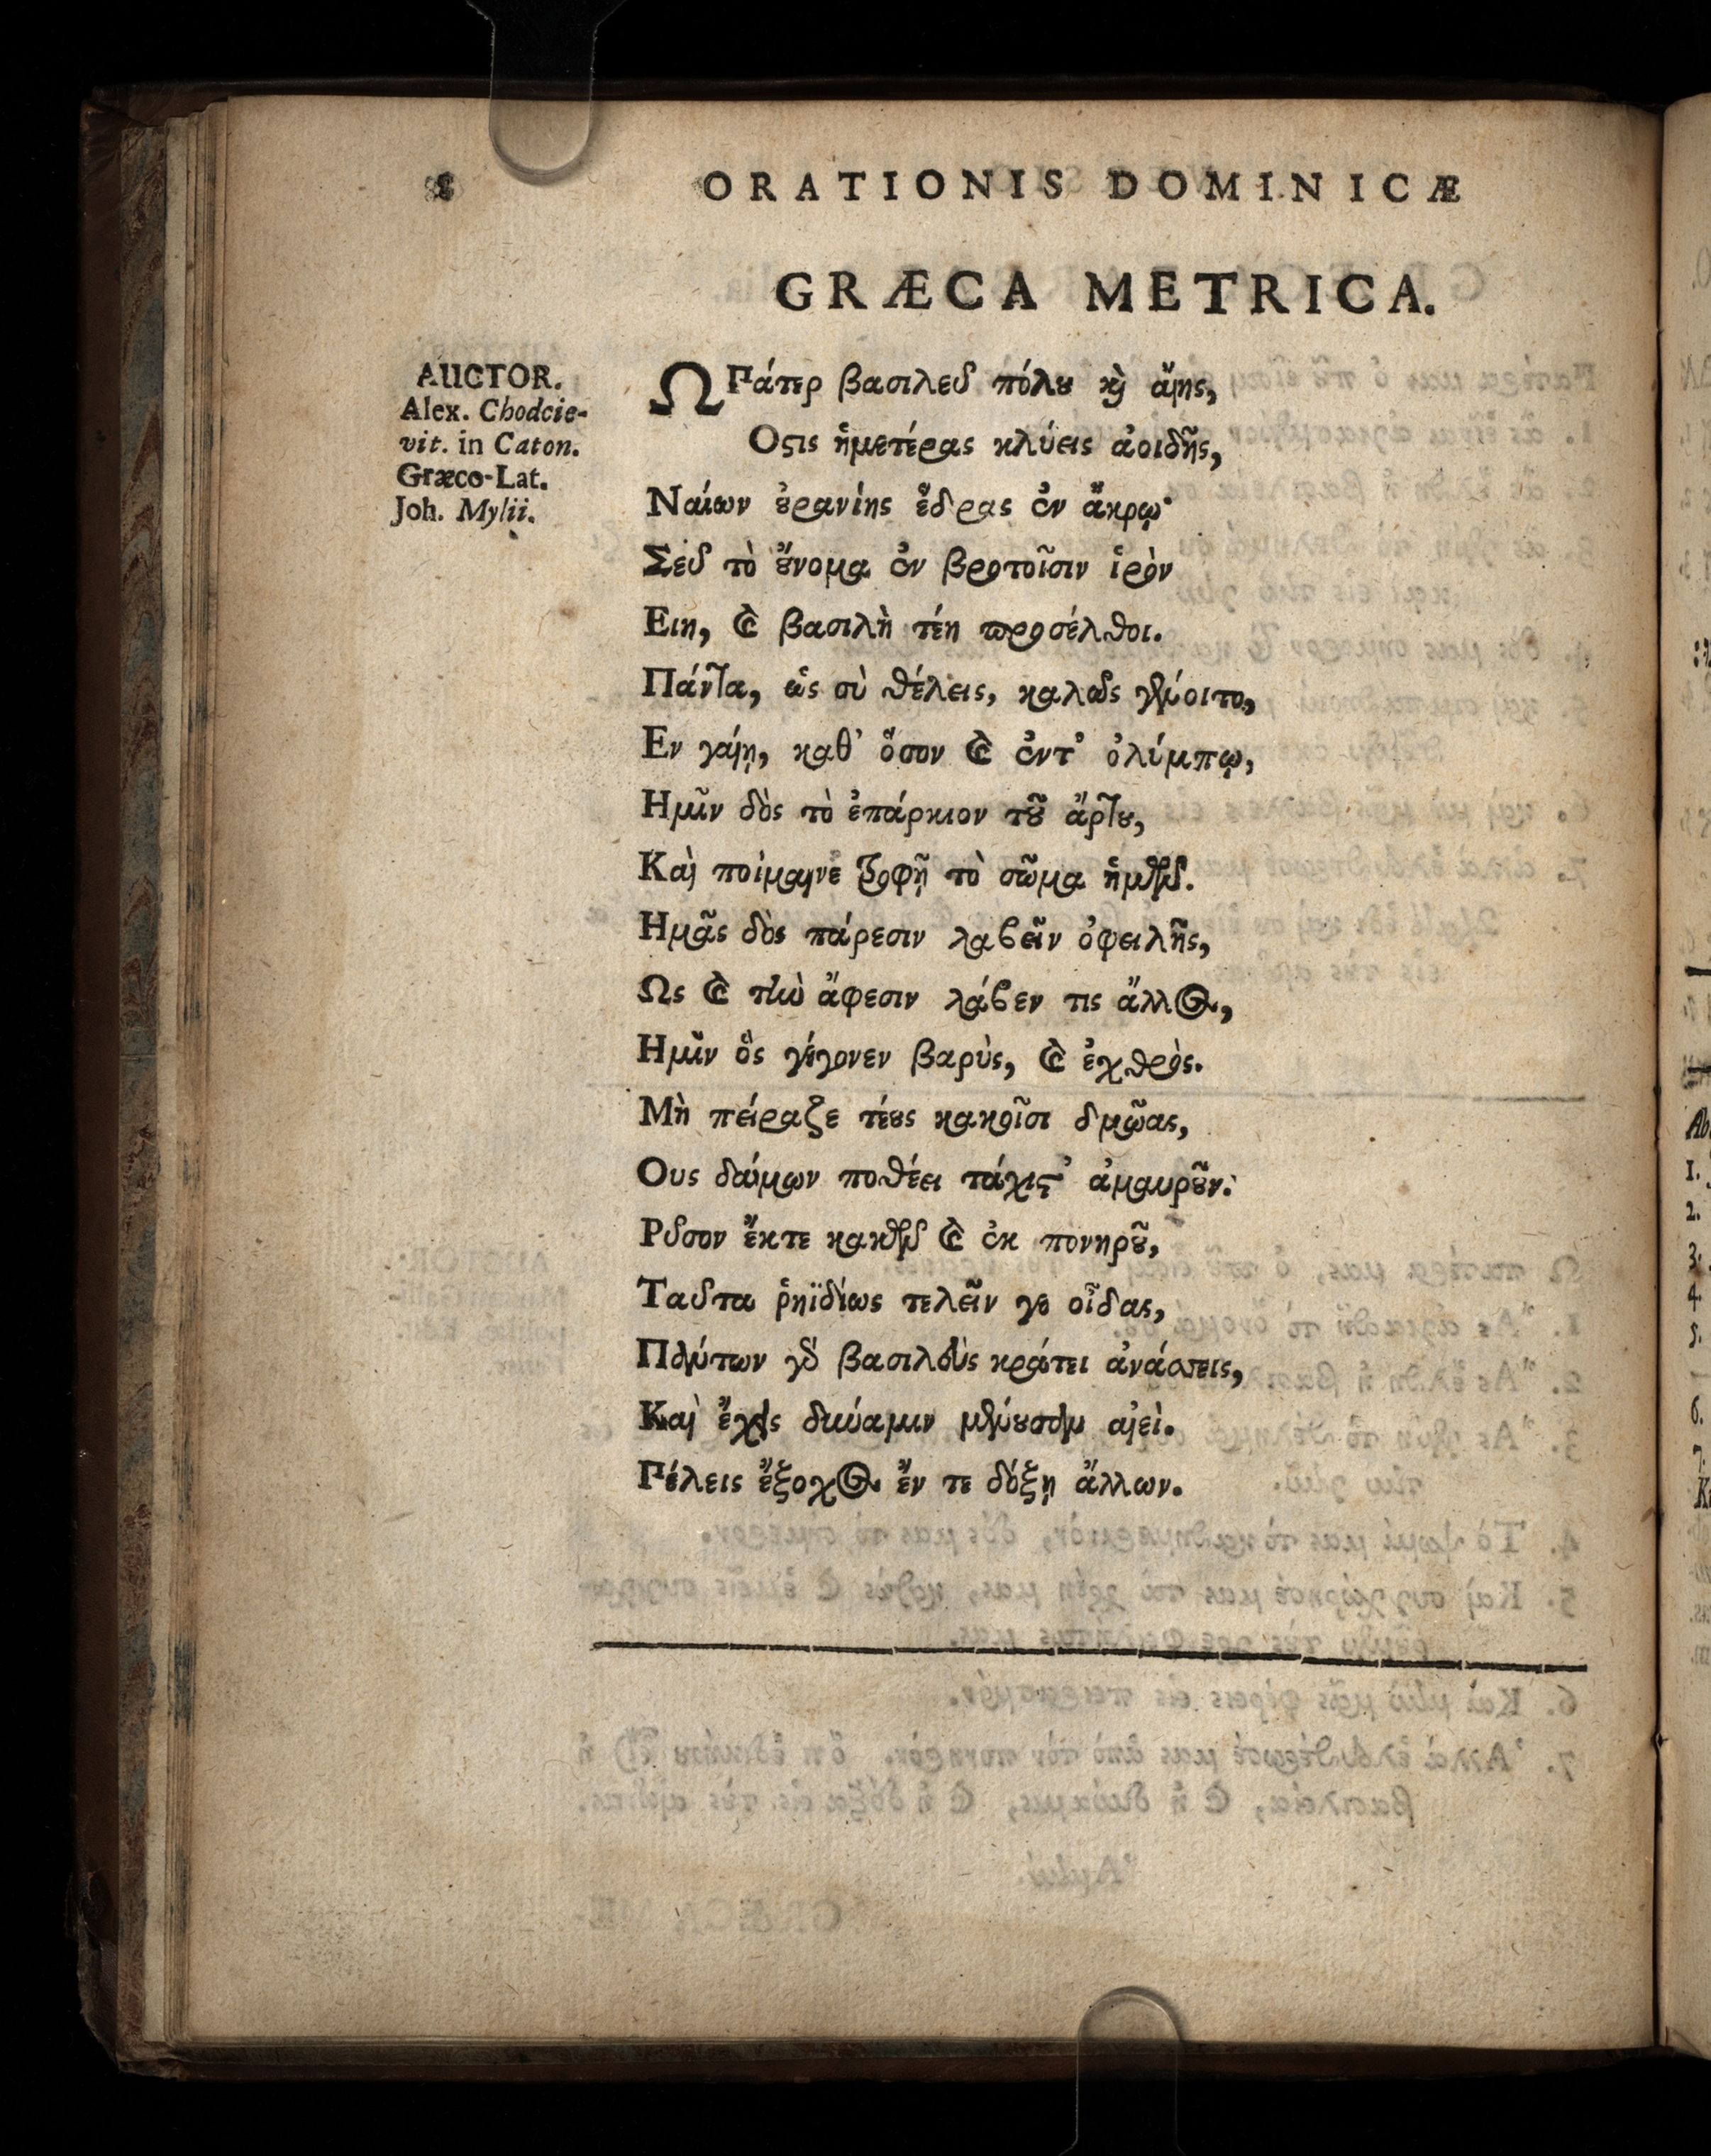 8 ORATIONIS DOMINICÆ
GRÆCA METRICA.
AUCTOR.
Alex. Chodcie-
vit. in Caton.
Græco-Lat.
Joh. Mylii.
Ω Γάτερ βασιλεῦ πόλου καὶ αἴης,
Οστις ἡμετέρας κλύεις ἀοιδῆς,
Ναίων ουρανίης ἕδρας ἐν ἄκρῳ·
Σεῦ τὸ οὔνομα ἐν βροτοῖσιν ἱρὸν
Ειη, καὶ βασιλὴ τέη προσέλθοι.
Πάντα, ὡς σὺ θέλεις, καλῶς γένοιτο,
Εν γαίῃ, καθ᾽ ὅσον καὶ ἐντ᾽ ὀλύμπῳ,
Ημῖν δὸς τὸ ἐπάρκιον τοῦ ἄρτου,
Καὶ ποίμαινε τροφῇ τὸ σῶμα ἡμῶν.
Ημᾶς δὸς πάρεσιν λαβεῖν ὀφειλῆς,
Ως καὶ τὴν ἄφεσιν λάβεν τις ἄλλος,
Ημῖν ὃς γέγονεν βαρὺς, καὶ ἐχθρὸς.
Μὴ πείραζε τέους κακοῖσι δμῶας,
Ους δαίμων ποθέει τάχιστ᾽ ἀμαυροῦν·
Ρῦσον ἔκτε κακῶν καὶ ἐκ πονηροῦ,
Ταῦτα ῥηϊδίως τελεῖν γε οἶδας,
Πάντων γὰρ βασιλεὺς κράτει ἀνάσσεις,
Καὶ ἔχεις δύναμιν μένουσαν αἰεὶ.
Γέλεις ἔξοχος ἔν τε δόξῃ ἄλλων.